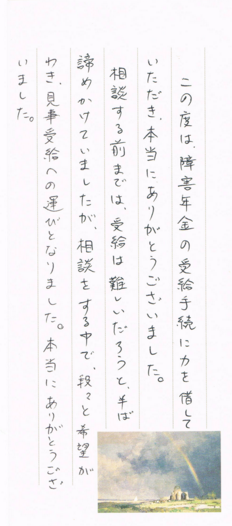 この度は、障害年金の受給手続に力を借して
いただき、本当にありがとうございました。
相談する前までは、受給は難しいだろうと、半ば
諦めかけていましたが、相談をする中で、段々と希望が
わき、見事受給への運びとなりました。本当にありがとうござ
いました。